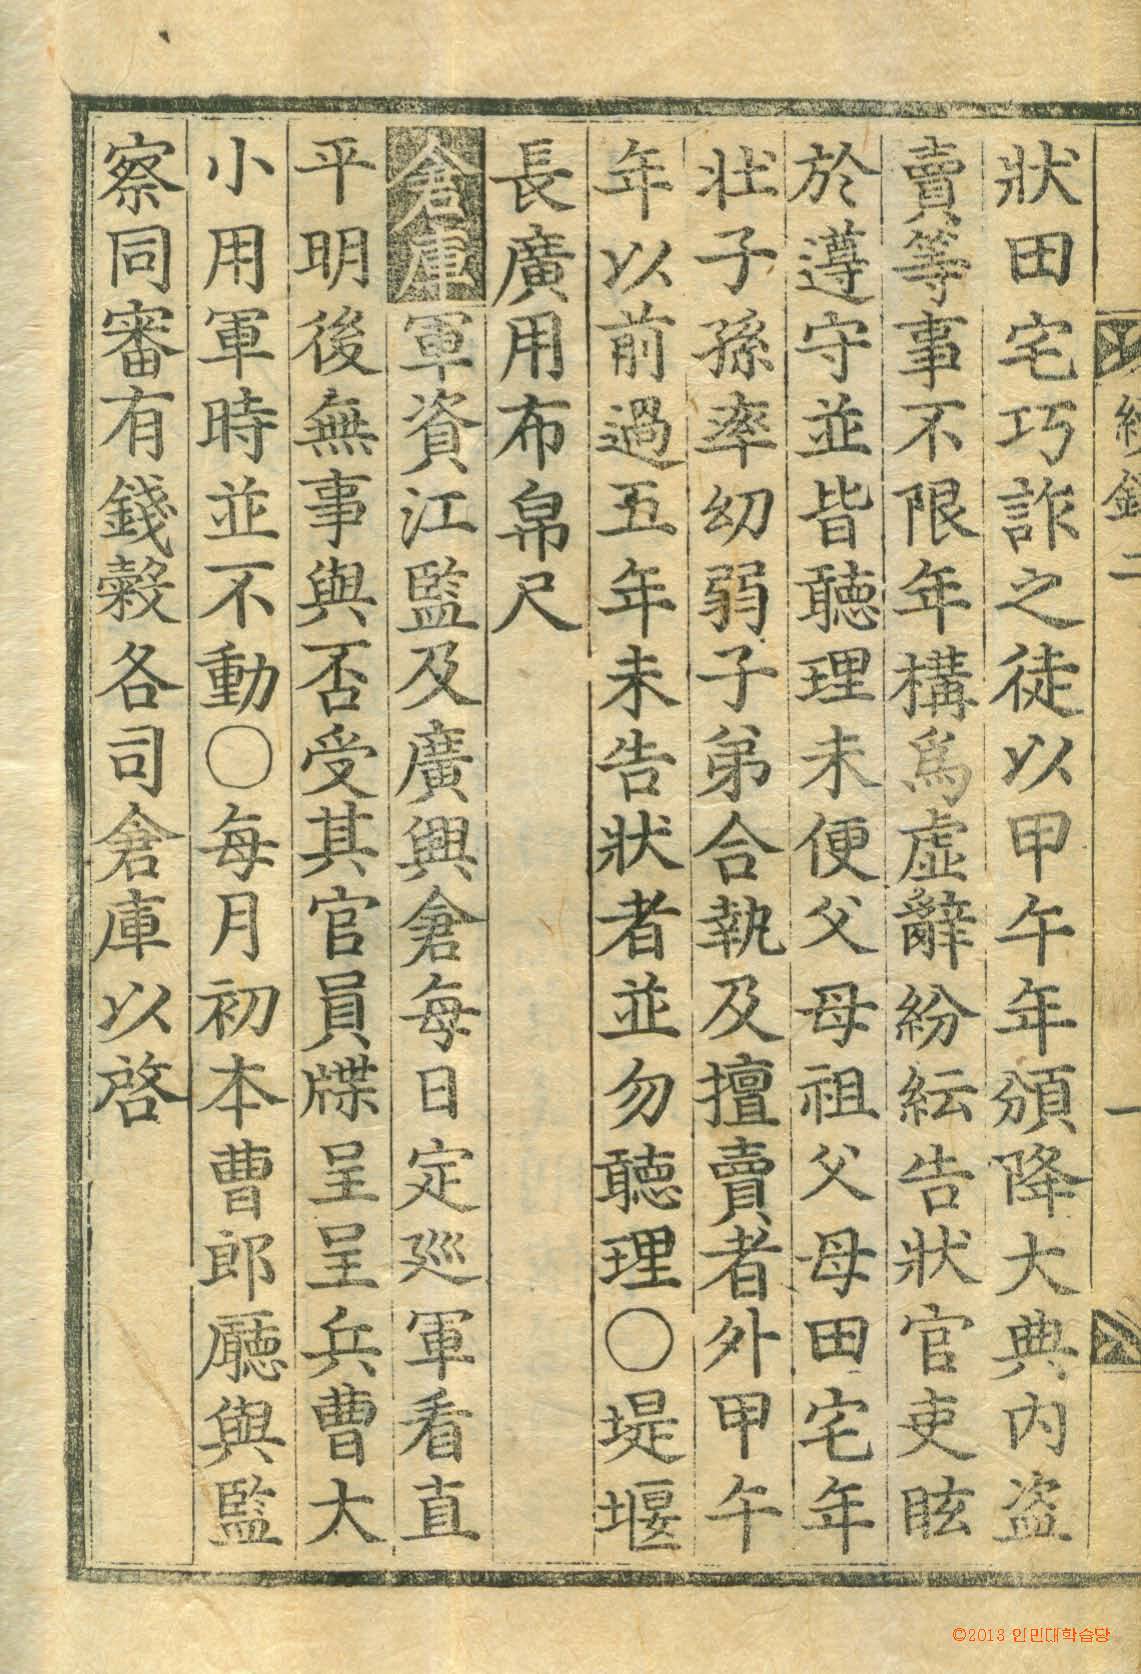 續錄二
一
狀田宅巧詐之徒以甲午年頒降大典內盜
賣等事不限年構爲虛辭紛紜告狀官吏眩
於遵守並皆聽理未便父母祖父母田宅年
壯子孫率幼弱子弟合執及擅賣者外甲午
年以前過五年未告狀者並勿聽理○堤堰
長廣用布帛尺
倉庫軍資江監及廣興倉每日定廵軍看直
平明後無事與否受其官員牒呈呈兵曹大
小用軍時並不動○每月初本曹郎廳與監
察同審有錢穀各司倉庫以啓
©2013 인민대학습당